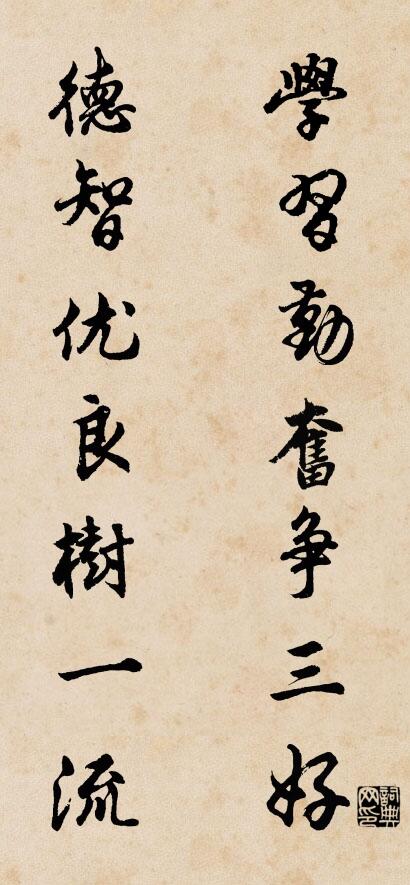 學習勤奮争三好
德智优良樹一流
詞典网印